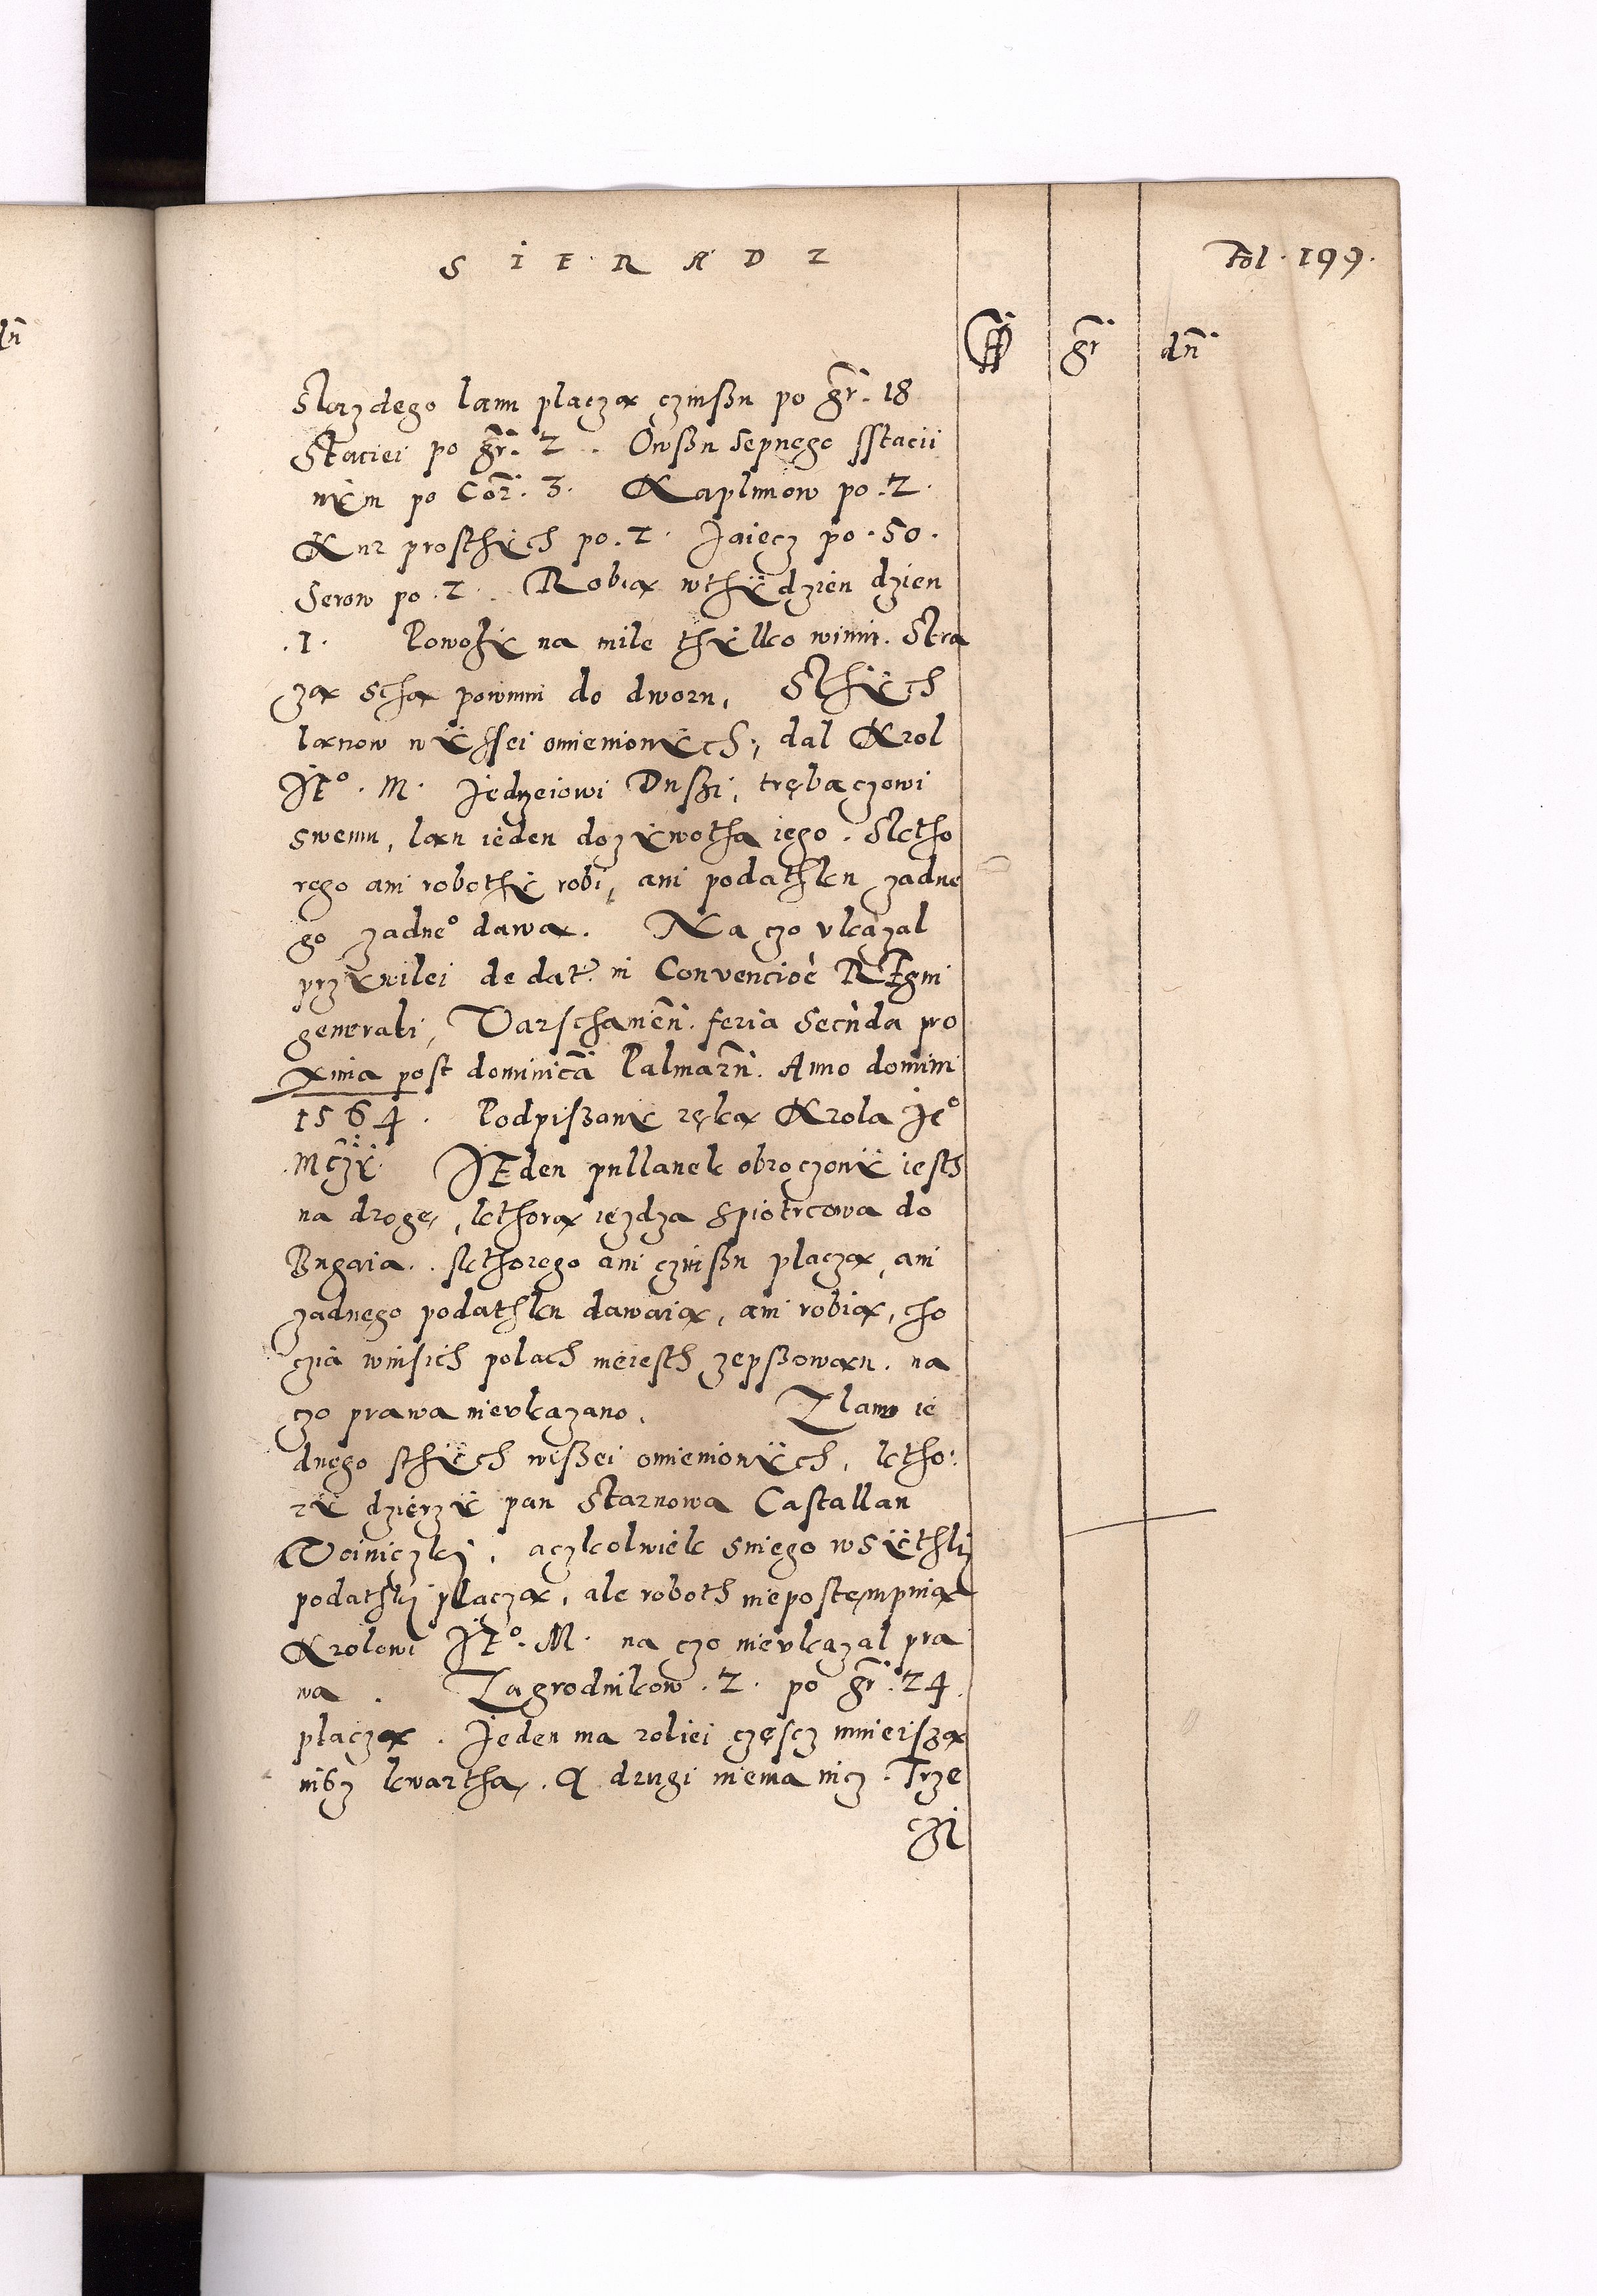 SIERADZ
Fol. 199.
gr dn
Skazdego lanu placzą czinßu po gr. 18
Staciei po gr. 2. Owßu sepnego sstacii
nÿm po Cor. 3. Kaplunow po. 2.
Kur prosthÿch po. 2. Jaiecz po. 50.
Serow po. 2. Robią wthÿdzien dzien
.1. Powozÿ na mile thÿlko winni. Stra
zą schą powinni do dworu, Sthÿch
lanow wÿssei omienionÿch, dal Krol
JE°. M. Jedrzeiowi Dußi, trębaczowi
swemu, lan ieden dozÿwotha iego. Sktho
rego ani robothÿ robi, ani podathku zadne
go zadne° dawa. Na czo ukazal
przÿwilei de dat. in Convencioe REgni
generali, Varschavien. feria secunda pro
xima post dominica Palmarn. Anno domini
1564. Podpißanÿ ręką Krola Je°
Mczÿ. JEden pullanek obroczonÿ iesth
na drogę, kthorą iezdza Spiotrcowa do
Bugaia. skthorego ani czinßu placzą, ani
zadnego podathku dawaią, ani robią, cho
czia winsich polach nieiesth zepßowan. na
czo prawa nieukazano. Zlanu ie
dnego sthÿch wißei omienionÿch, ktho:
rÿ dzierzÿ pan Starnowa Castallan
Voiniczki, aczkolwiek sniego wsÿthki
podathki placzą, ale roboth niepostempuią
Krolowi JE°. M. na czo nieukazal pra
wa. Zagrodnikow. 2. po gr. 24.
placzą. Jeden ma roliei częscz mnieiszą
nisz kwartha. A drugi niema nicz. Trze
czi